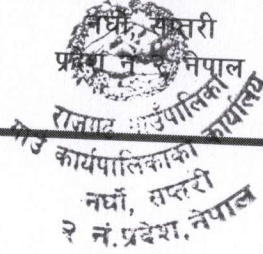 नर्घो, सप्तरी
प्रदेश नं २ नेपाल
राजगढ गाउँपालिका
गाउँ कार्यपालिकाको कार्यालय
नर्घो, सप्तरी
२ नं.प्रदेश, नेपाल